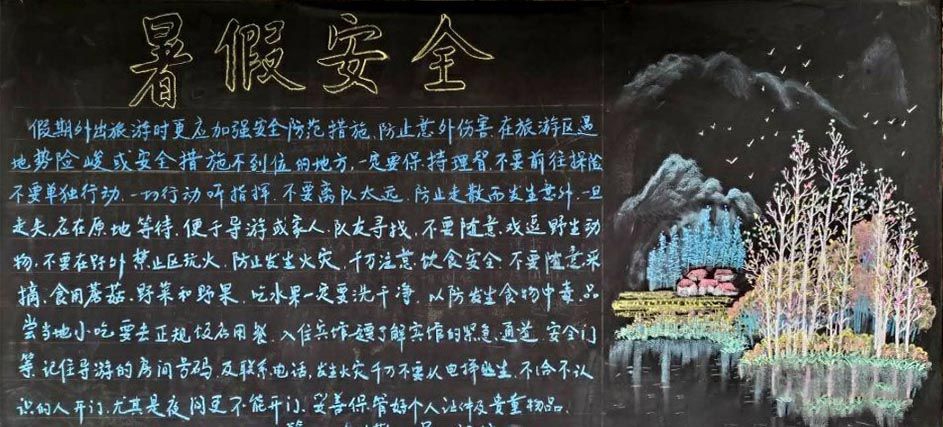 暑假安全
假期外出旅游时更应加强安全防范措施、防止意外伤害在旅游区遇
地势险峻或安全措施不到位的地方,一定要保持理智不要前往探险
不要单独行动、一切行动听指挥、不要离队太远、防止走散而发生意外、一旦
走失应在原地等待、便于导游或家人、队友寻找、不要随意戏逗野生动
物、不要在野外禁止区玩火、防止发生火灾、千万注意饮食安全、不要随意采
摘、食用蘑菇、野菜和野果、吃水果一定要洗干净、以防发生食物中毒、品
尝当地小吃要去正规饭店用餐、入住宾馆要了解宾馆的紧急通道、安全门
等、记住导游的房间号码及联系电话,发生火灾千万不要从电梯逃生、不给不认
识的人开门、尤其是夜间更不能开门、妥善保管好个人证件及贵重物品、